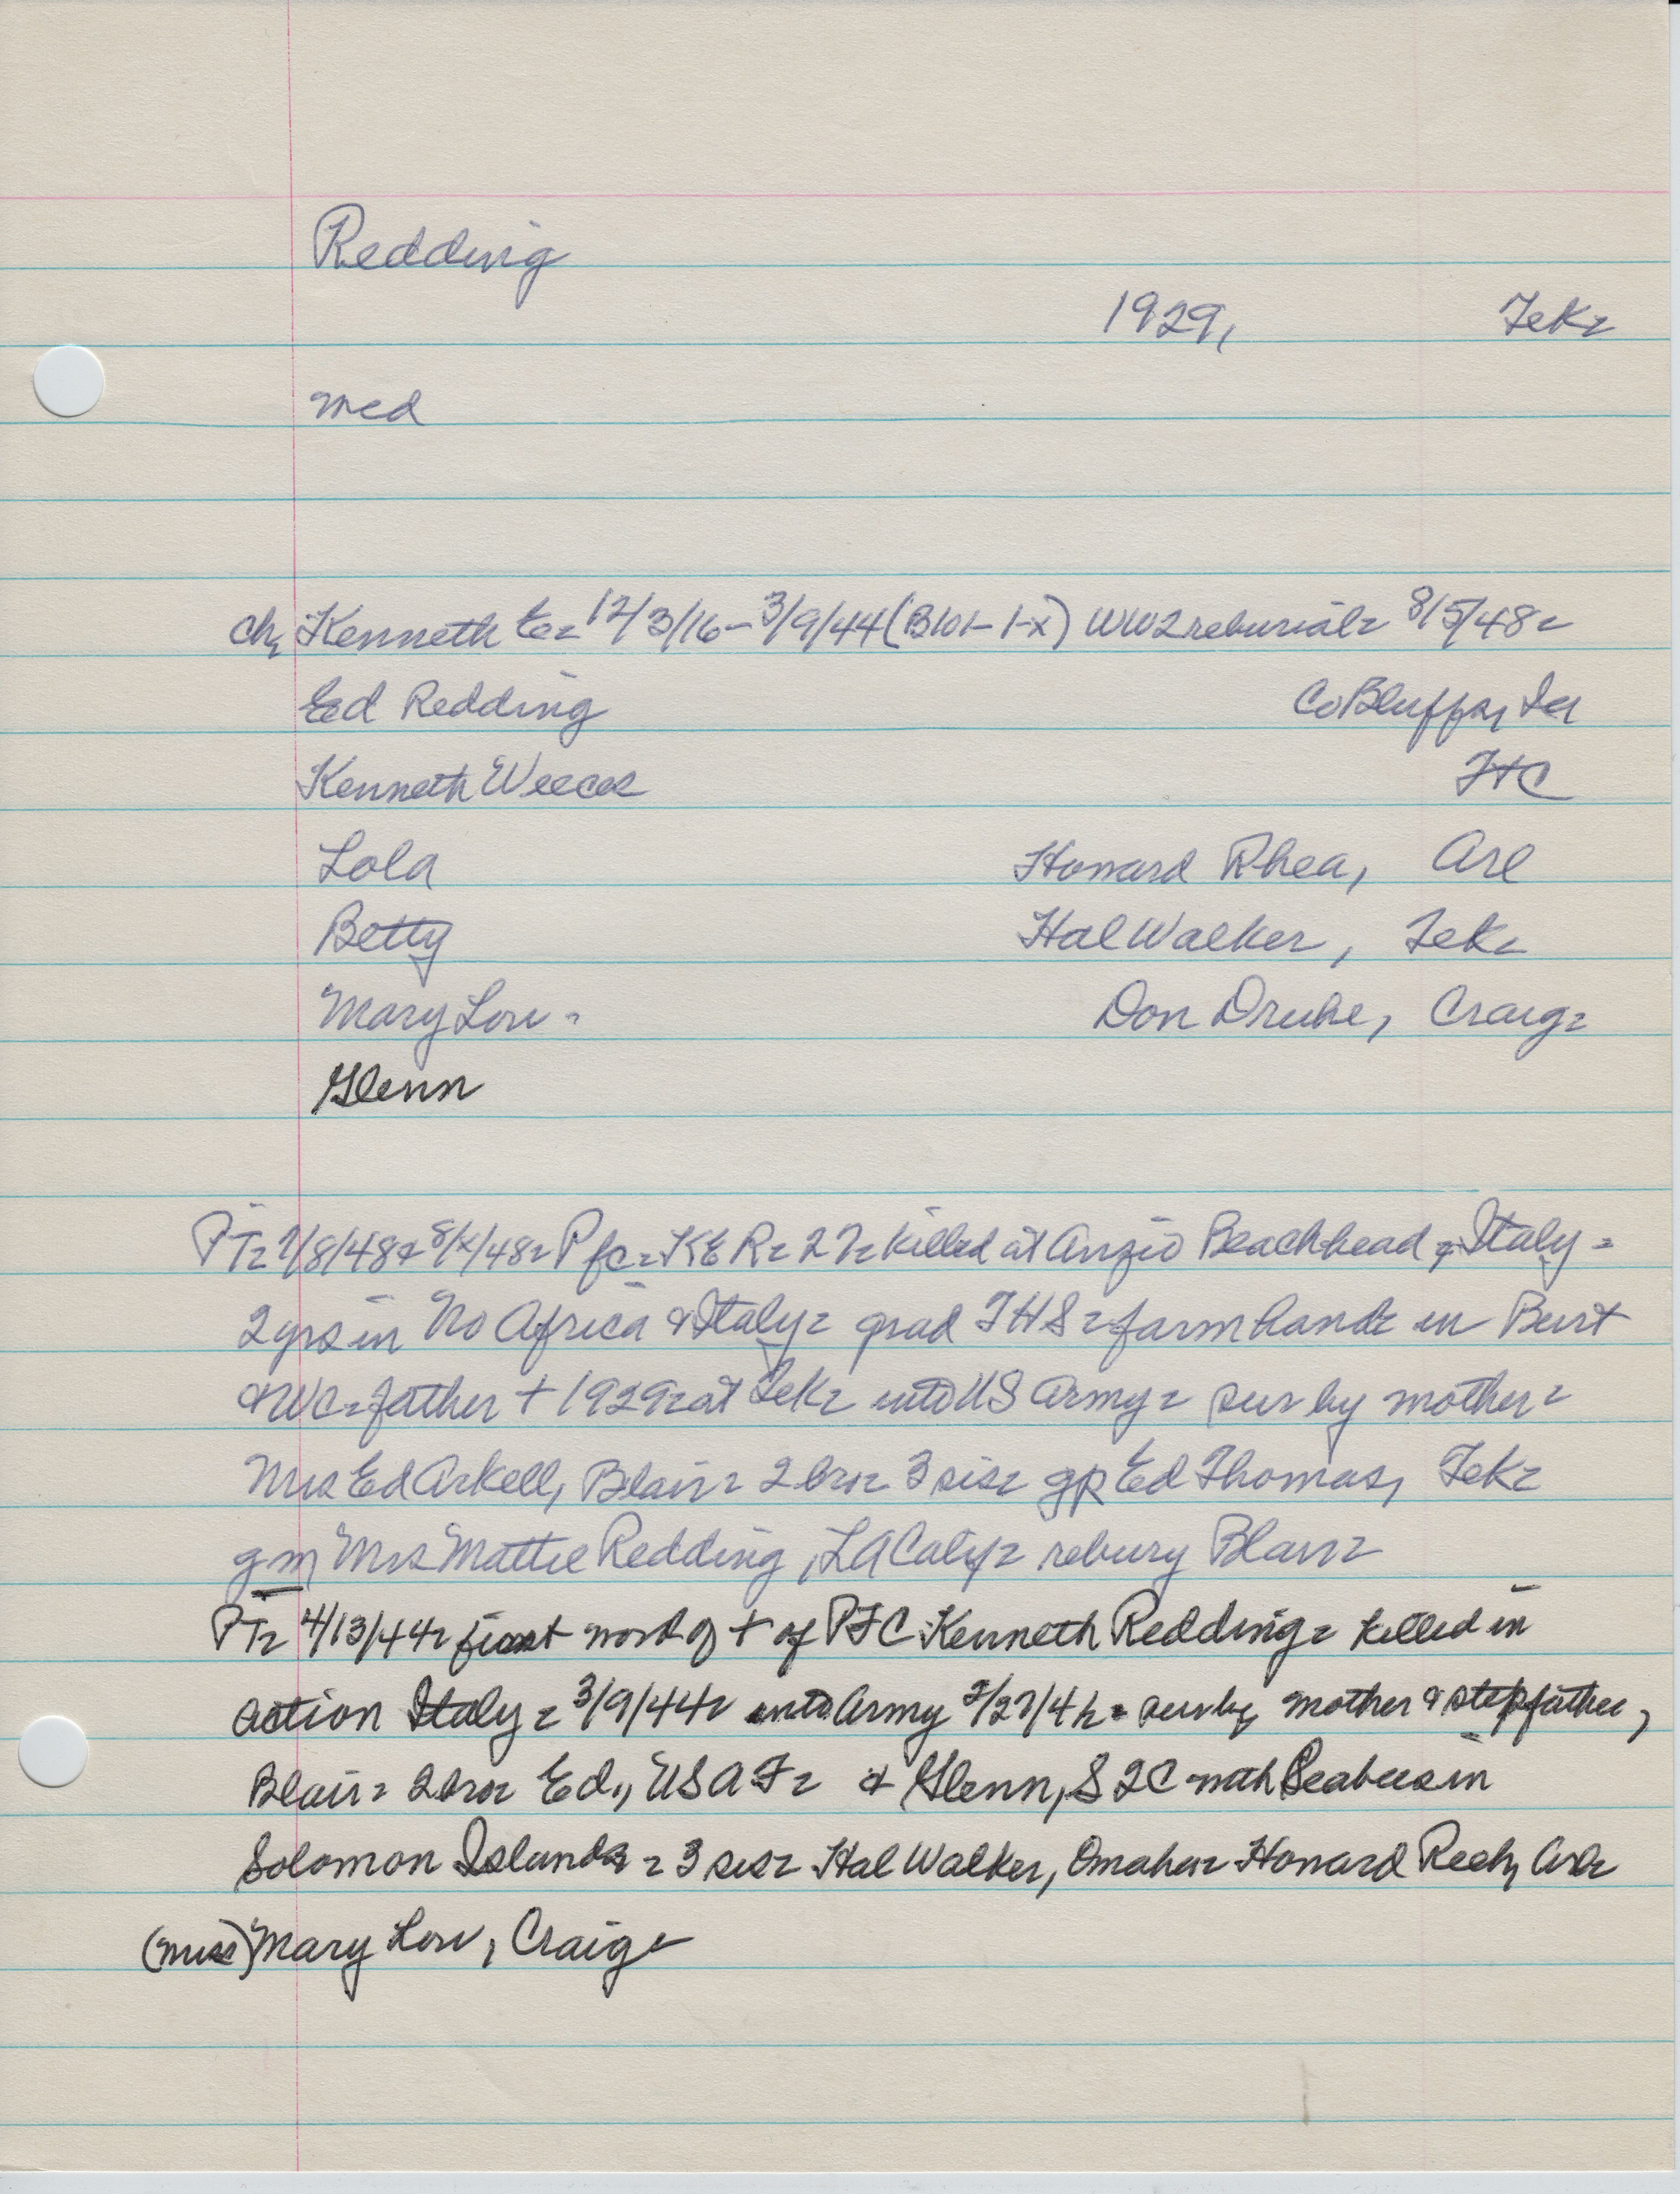 Redding
1929, Tek=
med
ch, Kenneth E= 12/3/16-3/9/44 (B101-1-x) WW2 reburial= 8/5/48=
Ed Redding Co Bluffs, Ia
Kenneth
Lola Howard Rhea, Arl
Betty Hal Walker, Tek=
Mary Lou= Don Druhe, Craig=
Glenn
PT= 7/8/48 & 8/x/48= Pfc= KER= 27= killed at Anzio Beachhead, Italy=
2 yrs in No Africa & Italy= grad THS= farm hand= in Burt
& WC= father + 1929= at Tek= into US Army= sur by mother=
Mrs Ed Arkell, Blair= 2 bro= 3 sis= gp Ed Thomas, Tek=
gm Mrs Mattie Redding, LA Calif= rebury Blair=
PT= 4/13/44= first word of + of PFC Kenneth Redding= killed in
action Italy= 3/9/44= into Army = sur by mother & stepfather,
Blair= 2 bro= Ed., USAF= & Glenn, S2C with Seabees in
Solomon Islands= 3 sis= Hal Walker, Omaha= Howard Arl=
(miss) Mary Lou, Craig=